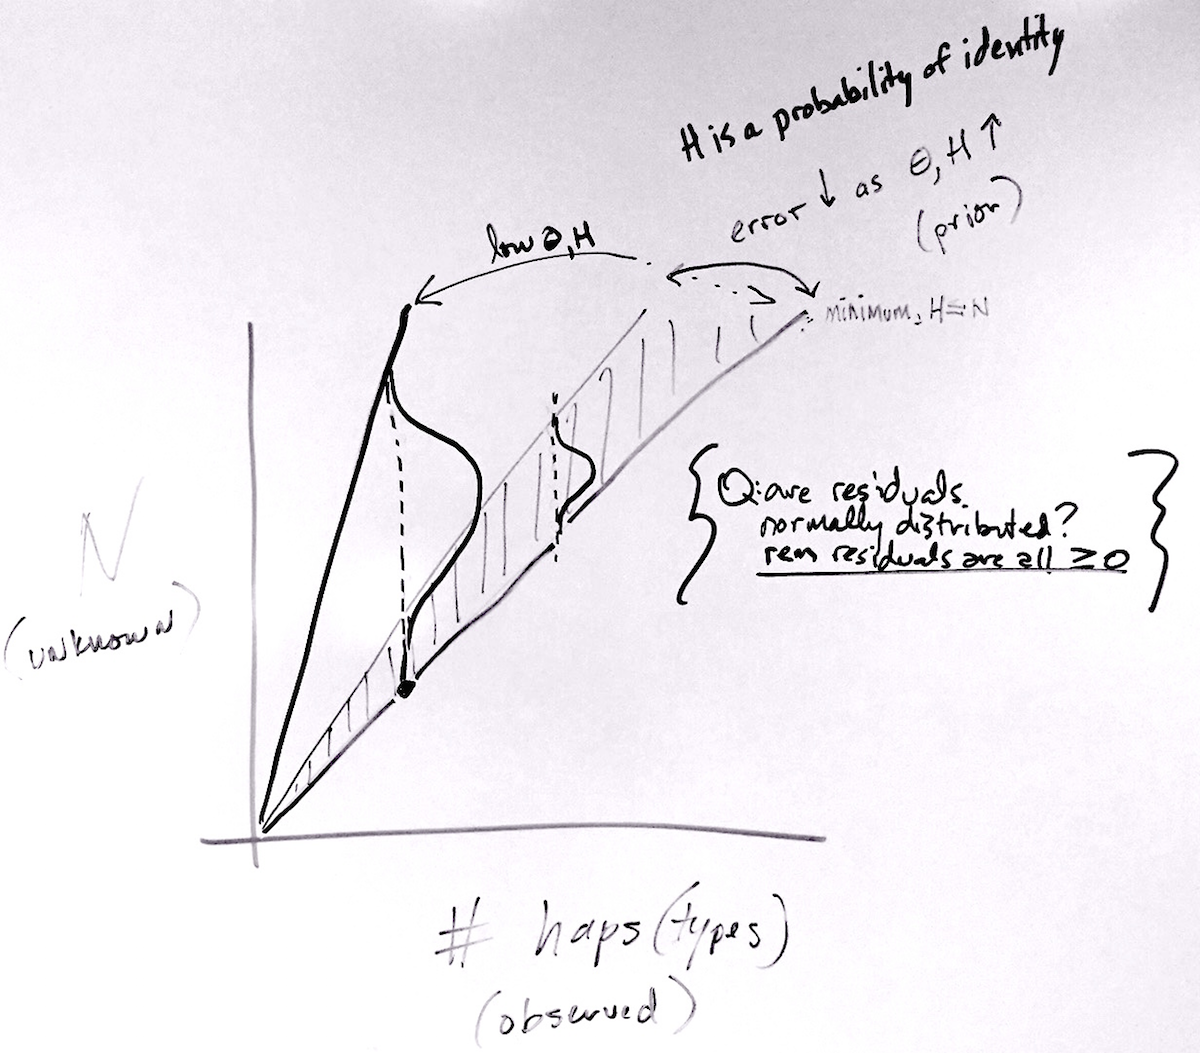 H is a probability of identity
error ↓ as Θ, H ↑
(prior)
low Θ, H
minimum, H≤N
Q: are residuals
normally distributed?
rem residuals are all ≥ 0
N
(unknown)
# haps (types)
(observed)